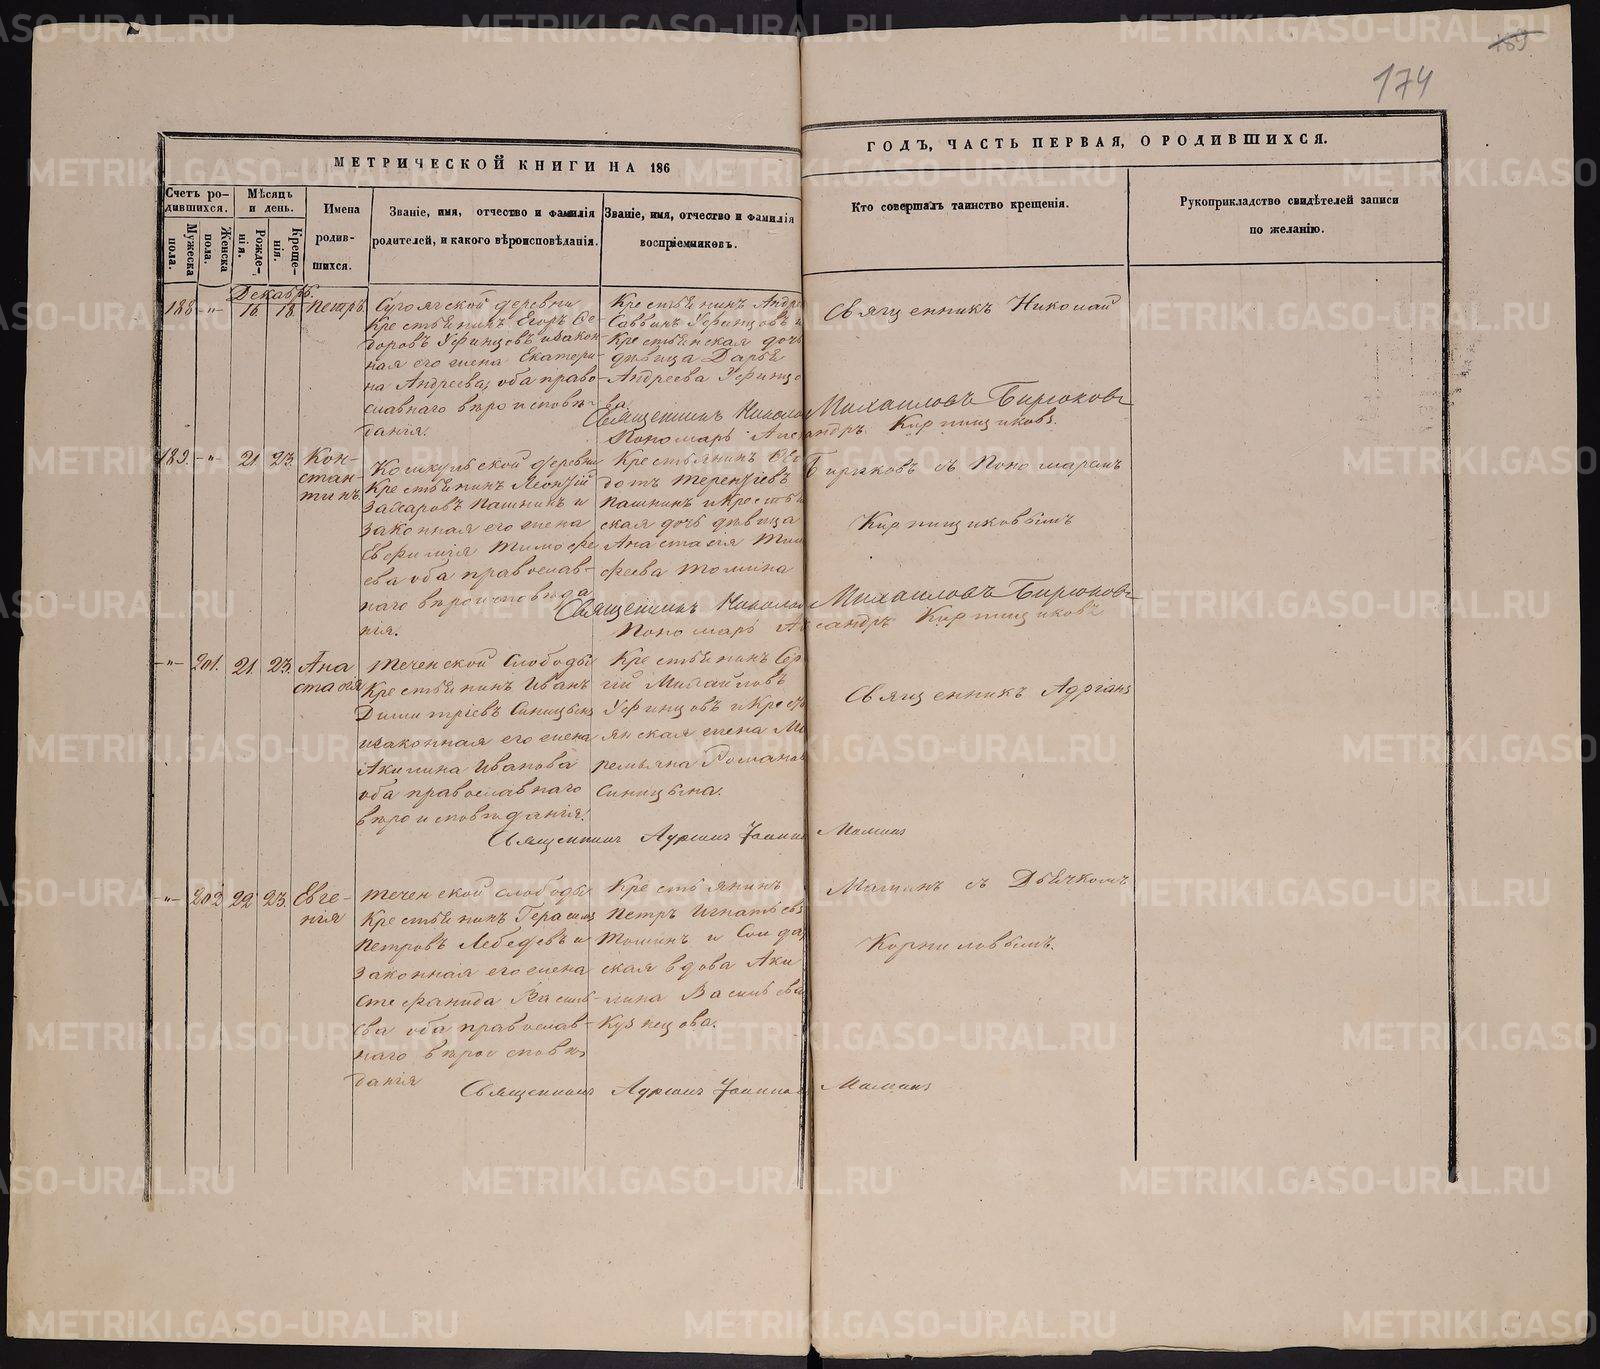 189
174
МЕТРИЧЕСКОЙ КНИГИ НА 186
ГОДЪ, ЧАСТЬ ПЕРВАЯ, О РОДИВШИХСЯ.
Счетъ ро-
дившихся.
Мужеска
пола.
Женска
пола.
Мѣсяцъ
и день.
Рожде-
нія.
Креще-
нія.
Имена
родив-
шихся.
Званіе, имя, отчество и фамилія
родителей, и какого вѣроисповѣданія.
Званіе, имя, отчество и фамилія
воспріемниковъ.
Кто совершалъ таинство крещенія.
Рукоприкладство свидѣтелей записи
по желанію.
Декабрь.
188 -"- 16. 18. Петръ
Сугоякской деревни
Крестьянинъ Егоръ Ѳе-
доровъ Уфинцевъ и закон-
ная его жена Екатери-
на Андреева, оба право-
славнаго вѣроисповѣ-
данія.
Крестьянинъ Андре
Саввинъ Уфинцовъ и
Крестьянская дочь
дѣвица Дарья
Андреева Уфинцо
ва
Священникъ Николай
Священникъ Николай Михаиловъ Бирюковъ
Пономарь Александръ Кирпищиковъ.
189. -"- 21 23. Кон-
стан-
тинъ
деревни
Крестьянинъ Леонтій
Захаровъ Пашнинъ и
законная его жена
Евфимія Тимофе
ева оба православ-
наго вѣроисповѣда
нія.
Крестьянинъ Ѳео
дотъ Терентіевъ
Пашнинъ и Крестья
ская дочь дѣвица
Анастасія Тим
феева Томина
Бирюковъ съ Пономаремъ
Кирпищиковымъ
Священникъ Николай Михаиловъ Бирюковъ
Пономарь Александръ Кирпищиковъ
-"- 201. 21. 23. Ана
стасія
Теченской Слободы
Крестьянинъ Иванъ
Димитріевъ Синицынъ
и законная его жена
Акилина Иванова
оба православнаго
вѣроисповѣданія.
Крестьянинъ Сер
гій Михаиловъ
Уфинцовъ и Кресть
янская жена Ма
ремьяна Романов
Синицына.
Священникъ Адріанъ
Священникъ Адріанъ Іоанновъ Маминъ
-"- 202 22 23. Евге-
нія
Теченской слободы
Крестьянинъ Герасимъ
Петровъ Лебедевъ и
законная его жена
Стефанида Василь-
ева оба православ-
наго вѣроисповѣ
данія
Крестьянинъ
Петръ Игнатьевъ
Томинъ и Солдат
ская вдова Аки
лина Васильева
Кузнецова.
Маминъ съ Дьячкомъ
Корниловымъ.
Священникъ Адріанъ Іоанновъ Маминъ
METRIKI.GASO-URAL.RU